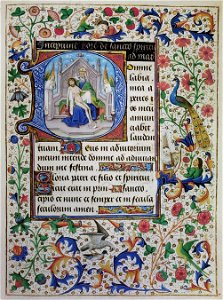 Incipiunt hore de sancto spiritu
ad mat
Domine
labia
mea a
os meu
abit
laudem
tuam Deus in adiutorium
meum intende domine ad adiuuan
dum me festina
Gloria patri et filio et spiritui
Sicut erat in prin sancto
cipio et nunc et semper et in secula
seculorum amen